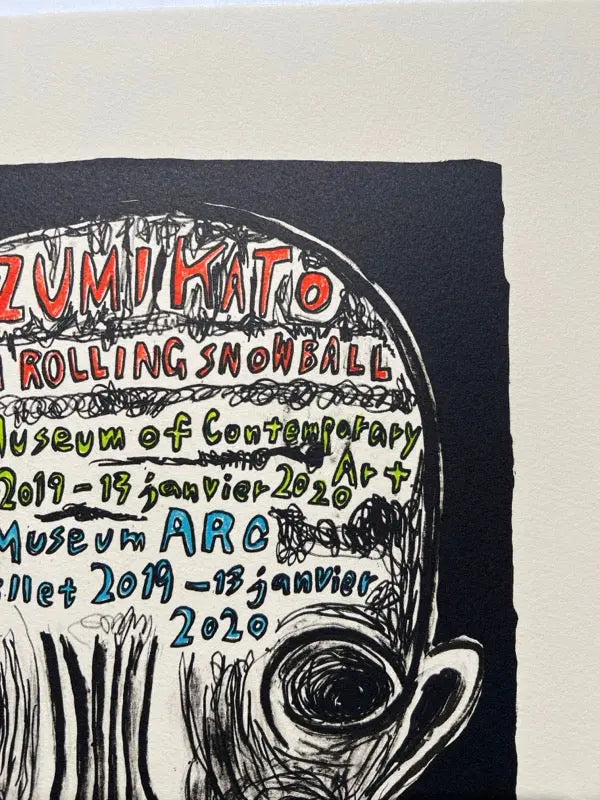 ZUMI KATO
ROLLING SNOWBALL
Museum of Contemporary
Art
2019 - 13 janvier 2020
Museum ARC
illet 2019 - 13 janvier
2020